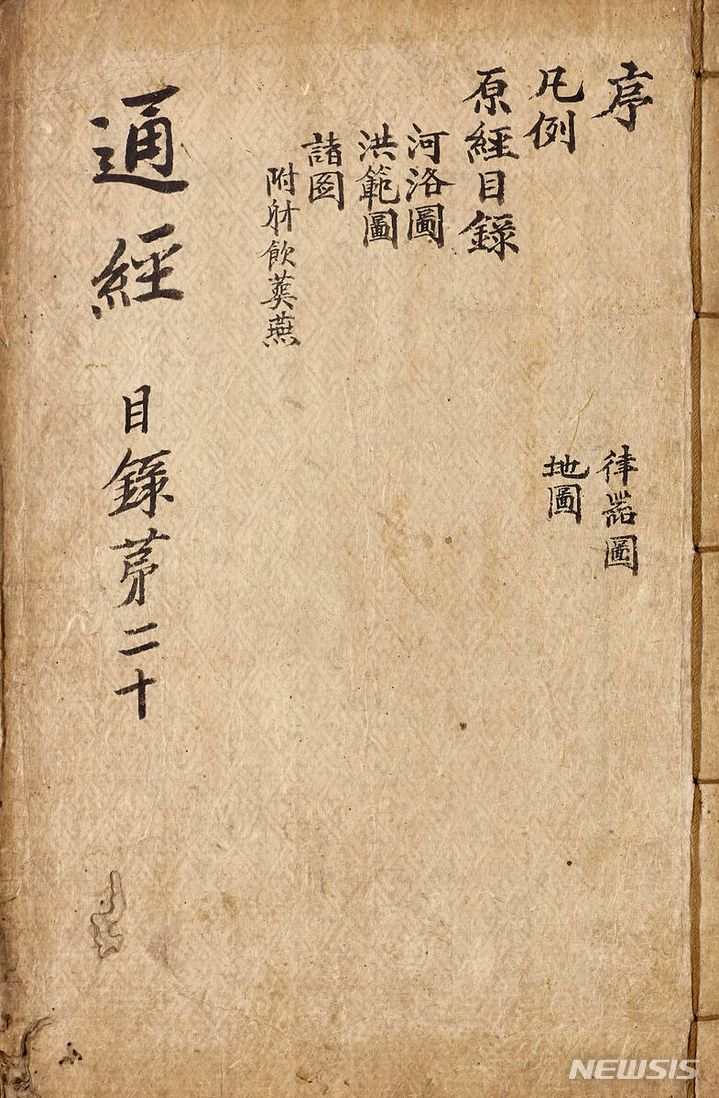 序
凡例
原經目錄
河洛圖
洪範圖
諸圖
附射飮葬燕
律器圖
地圖
通經 目錄苐二十
NEWSIS